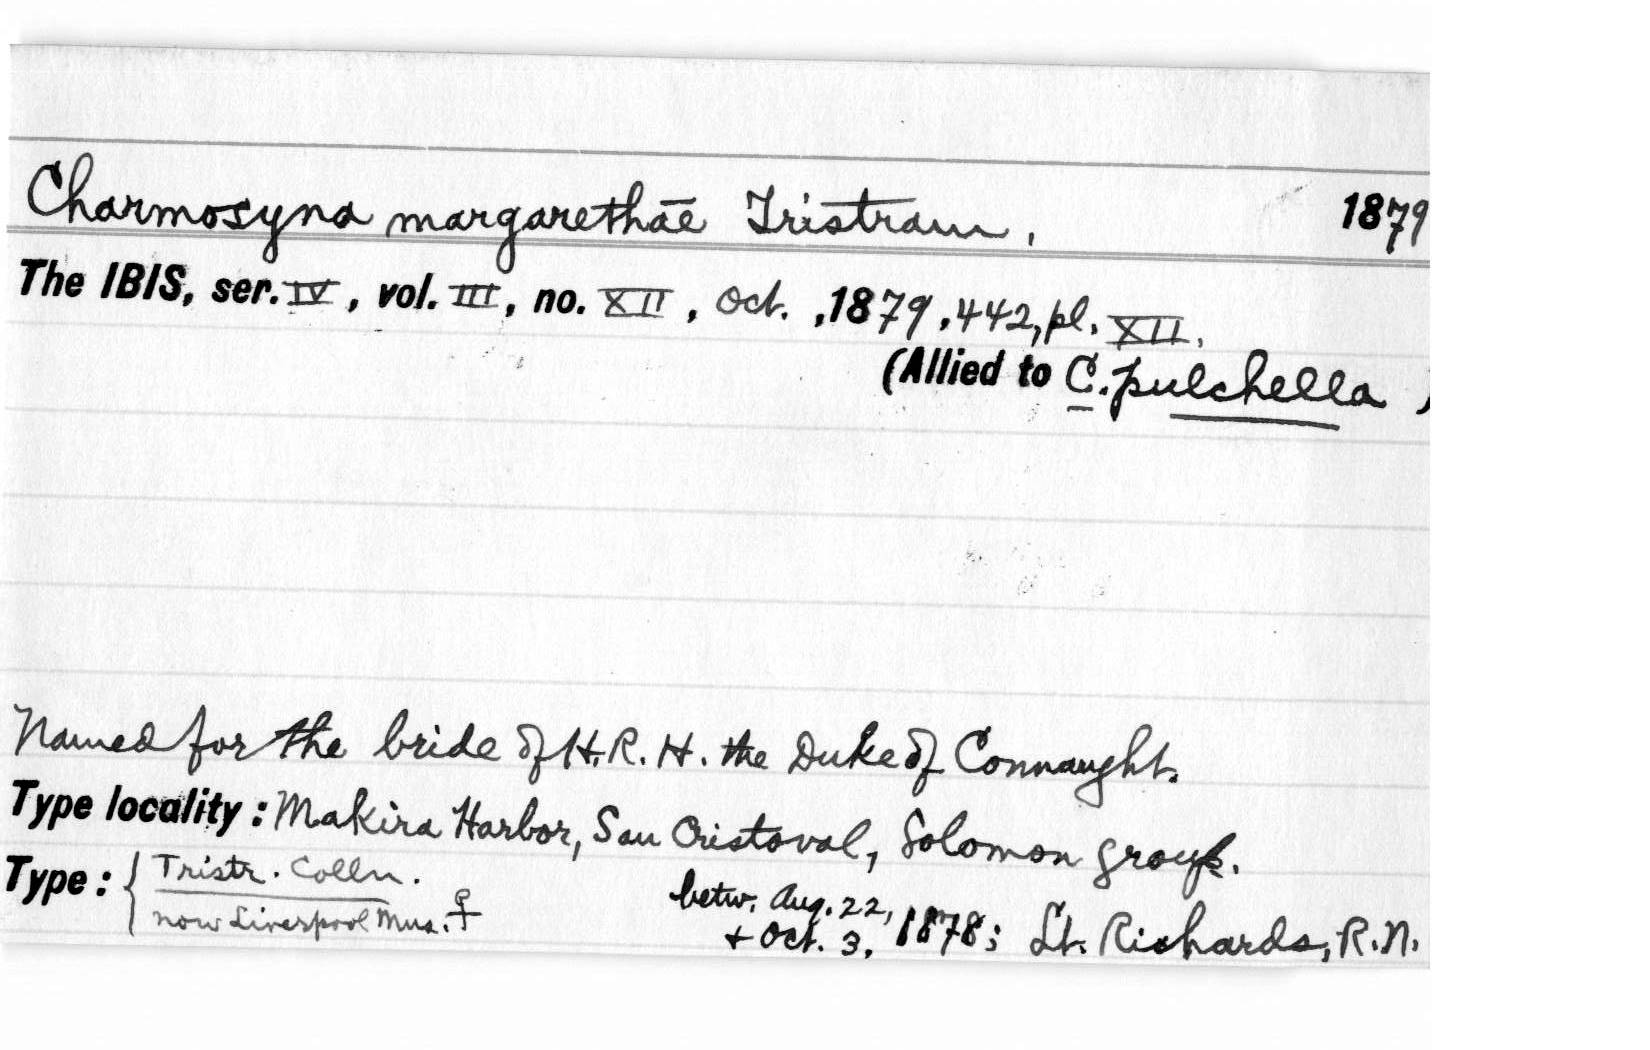 Charmosyna margarethae Tristram, 1879
The IBIS, ser. IV, vol. III, no. XII, Oct. ,1879, 442, pl. XII.
(Allied to C. pulchella )
Named for the bride of H.R.H. the Duke of Connaught.
Type locality: Makira Harbor, San Cristoval, Solomon group.
Type: { Tristr. Colln.
now Liverpool Mus. ♀
betw. Aug. 22,
+ Oct. 3, 1878; Lt. Richards, R.N.